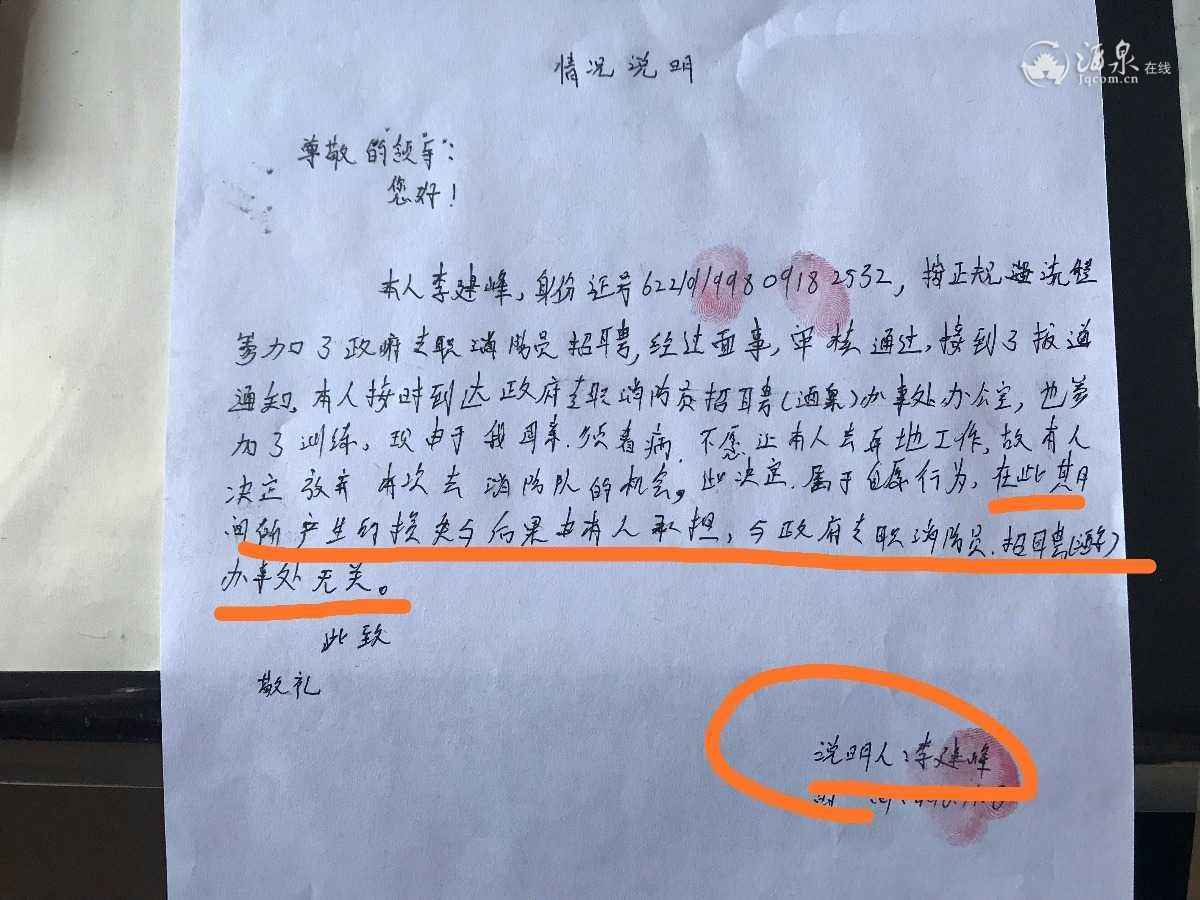 酒泉在线
Jqcom.cn
情况说明
尊敬的领导:
您好!
本人李建峰,身份证号 622101199809182532, 按正规
参加了政府专职消防员招聘,经过面事,审核通过,接到了报道
通知。本人按时到达政府专职消防员招聘(酒泉)办事处办公室,也参
加了训练。现由于我母亲.须看病.不愿让本人去外地工作,故本人
决定放弃本次去消防队的机会。此决定.属于自愿行为,在此期
间所产生的损失与后果由本人承担,与政府专职消防员.招聘(酒泉)
办事处无关。
此致
敬礼
说明人:李建峰